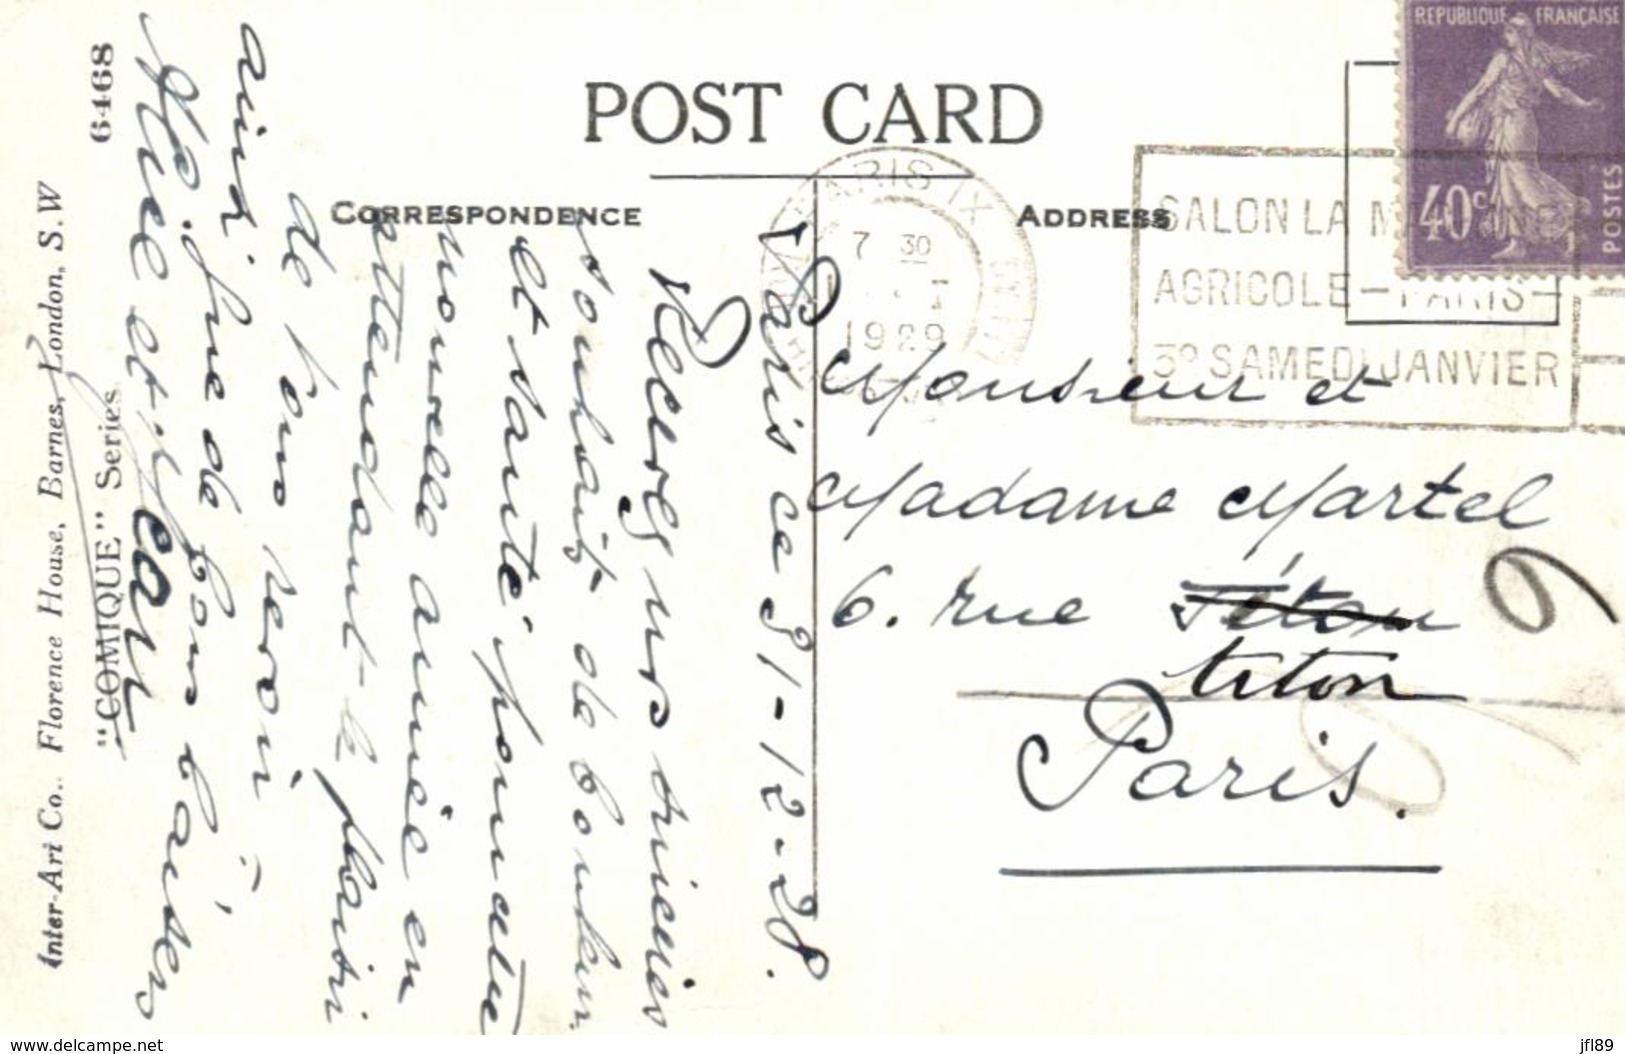 POST CARD
CORRESPONDENCE
ADDRESS
REPUBLIQUE FRANÇAISE
40c
POSTES
PARIS IX
7 30
1929
SALON LA M
AGRICOLE - PARIS -
3º SAMEDI JANVIER
6468
Inter-Art Co., Florence House, Barnes, London, S.W
"COMIQUE" Series
Paris ce 31-12-28.
Recevez nos sincères
souhaits de bonheur
et santé pour cette
nouvelle année en
attendant le plaisir
de vous revoir
ainsi que de bons baisers
Monsieur et
Madame Martel
6. rue Titon
titon
Paris.
www.delcampe.net
jfl89